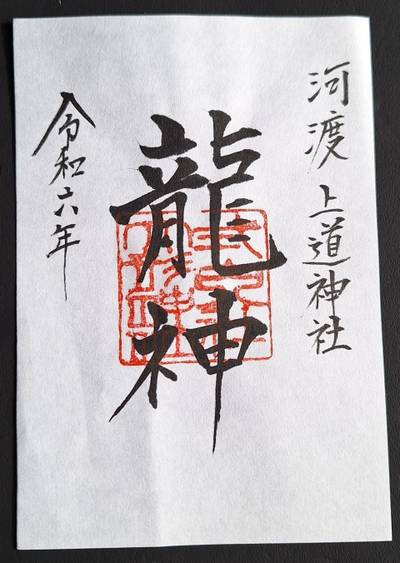 河渡 上道神社
龍神
令和六年